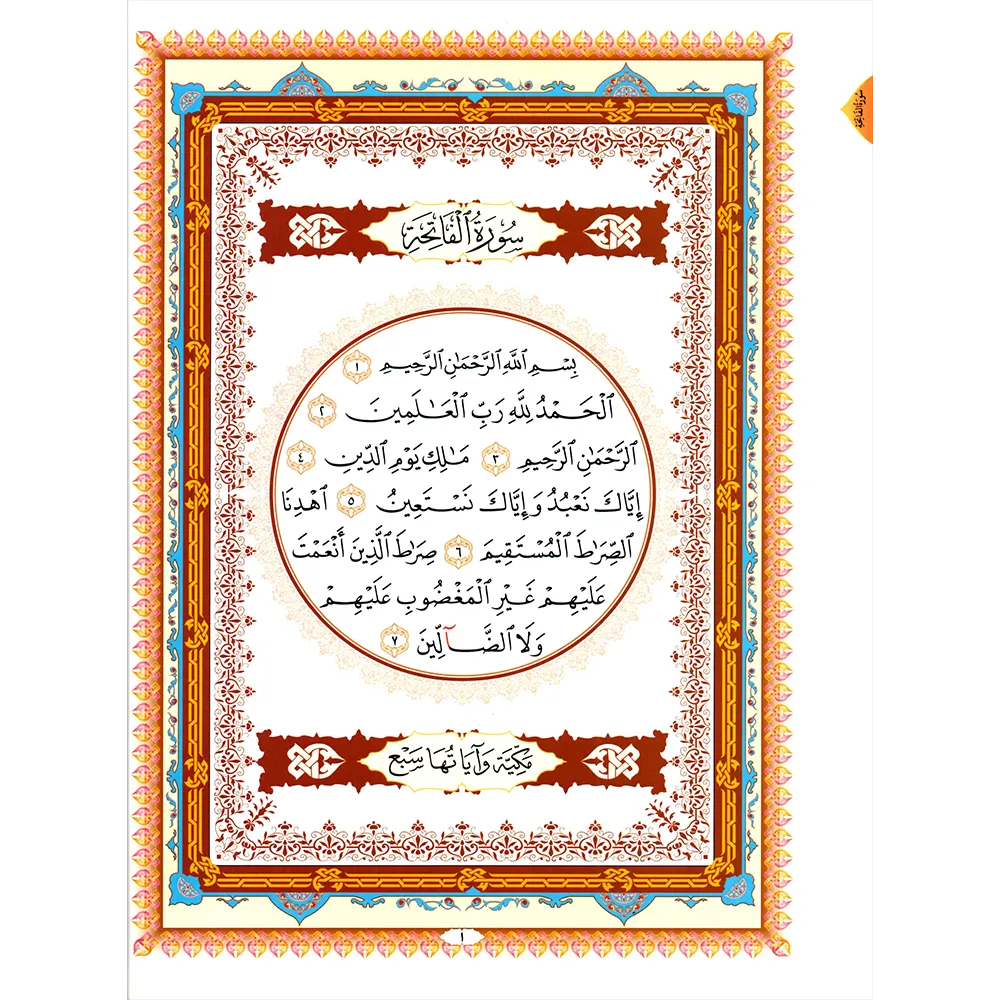 سُورَةُ ٱلْفَاتِحَةِ
سُورَةُ ٱلْفَاتِحَةِ
بِسْمِ ٱللَّهِ ٱلرَّحْمَٰنِ ٱلرَّحِيمِ ١
ٱلْحَمْدُ لِلَّهِ رَبِّ ٱلْعَٰلَمِينَ ٢
ٱلرَّحْمَٰنِ ٱلرَّحِيمِ ٣ مَٰلِكِ يَوْمِ ٱلدِّينِ ٤
إِيَّاكَ نَعْبُدُ وَإِيَّاكَ نَسْتَعِينُ ٥ ٱهْدِنَا
ٱلصِّرَٰطَ ٱلْمُسْتَقِيمَ ٦ صِرَٰطَ ٱلَّذِينَ أَنْعَمْتَ
عَلَيْهِمْ غَيْرِ ٱلْمَغْضُوبِ عَلَيْهِمْ
وَلَا ٱلضَّآلِّينَ ٧
مَكِّيَّة وَآيَاتُهَا سَبْع
١